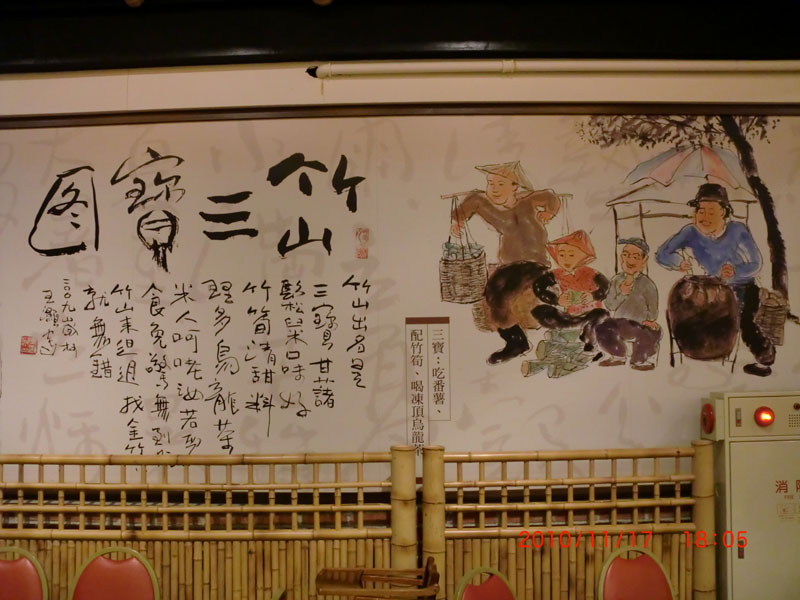 竹山三寶图
竹山出名是
三寶甘藷
鬆 口味好
竹筍清甜料
理多烏龍茶
人呵咾汝若
食免驚無到
竹山來 找金竹
就無錯
二〇〇九歲
三寶：吃番薯、
配竹筍、喝凍頂烏龍茶
消
2010/11/17 18:05